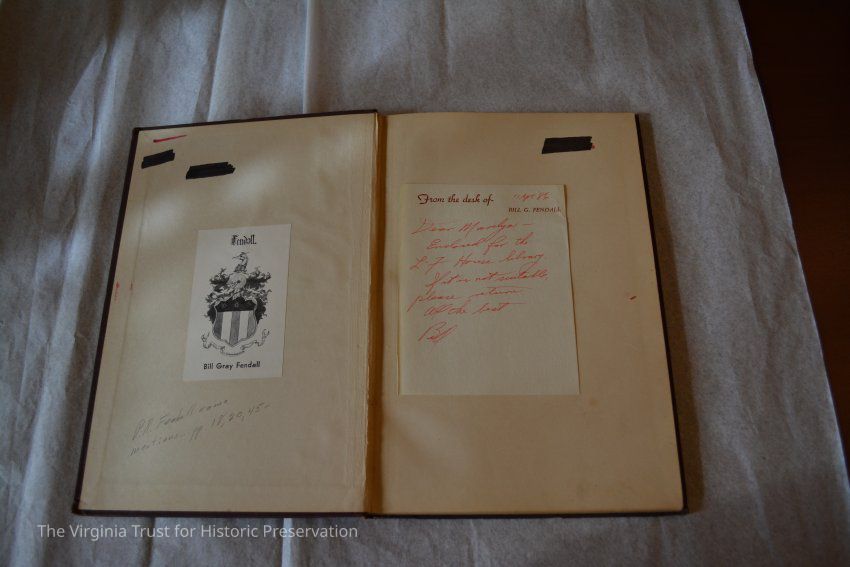 Fendall
Bill Gray Fendall
P.R. Fendall name
mentions - pp. 18, 20, 45 -
From the desk of
BILL G. FENDALL
Dear Marilyn -
Enclosed for the
L-F House library
If it is not suitable,
please return
All the best
Bill
The Virginia Trust for Historic Preservation